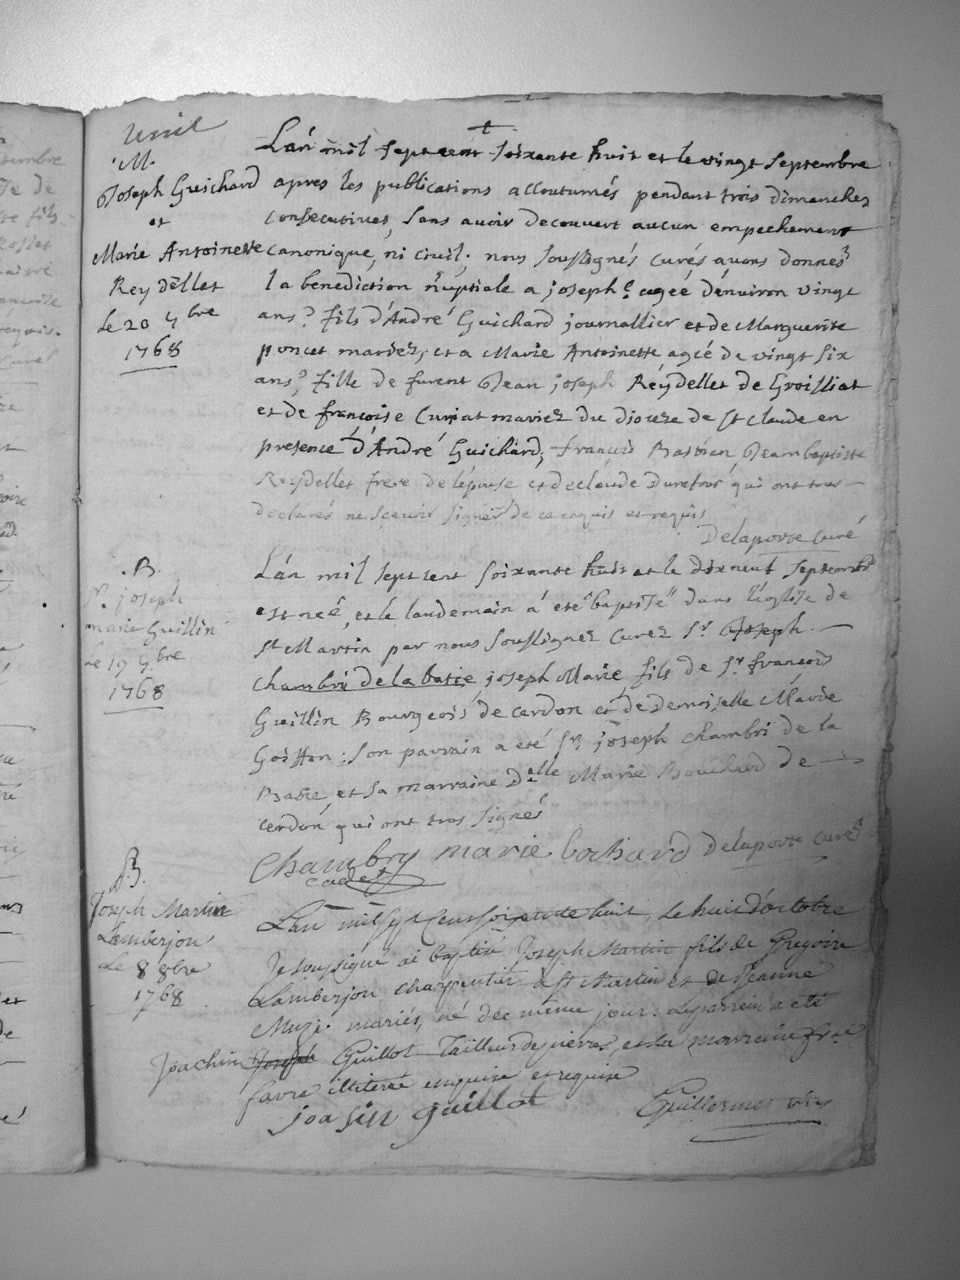 M.
Joseph Guichard
et
Marie Antoinette
Reydellet
le 20 7bre
1768
L'an mil sept cent soixante huit et le vingt septembre
apres les publications accoutumés pendant trois dimanches
consecutives, sans avoir decouvert aucun empechement
canonique, ni civil. nous soussignés curés avons donnés
la benediction nuptiale a joseph agéé d'environ vingt
ans fils d'André Guichard journallier et de Marguerite
poncet mariez, et a Marie Antoinette agéé de vingt six
ans fille de furent Jean joseph Reydellet de Groissiat
et de françoise Curiat mariez du diocese de St Claude en
presence d'André Guichard, françois Bastien Jean baptiste
Reydellet frere de l'épouse et de claude qui ont tous
declarés ne sçavoir signer de ce enquis et requis
Delaporte curé
B.
Sr. joseph
marie Guillin
le 19 7bre
1768
L'an mil sept cent soixante huit et le dixneuf septembre
est neé, et le landemain a eté baptisé dans l'église de
St Martin par nous soussignez curez Sr. Joseph
Chambri de la batie joseph Marie fils de Sr. françois
Guillin Bourgeois de cerdon et de demoiselle Marie
son parrain a eté Sr joseph chambri de la
Batie, et sa marraine Delle Marie Bouchard de
cerdon, qui ont tous signés
Chambry marie bochard Delaporte curé
cadet
B.
Joseph Martin
Lamberjon
Le 8 8bre
1768
L'an mil sept cent soixante huit, le huit d'octobre
Je soussigné ai baptisé Joseph Martin fils de Gregoire
Lamberjon charpentier à St Martin et de Jeanne
mariés, né de même jour. Le parrein a eté
Joachin Joseph Guillot Tailleur de pierres, et la marreine fse
favre illiterée enquise et requise
joasin guillot
Guillermet vic